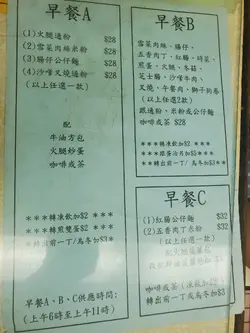 早餐A
(1)火腿通粉 $28
(2)雪菜肉絲米粉 $28
(3)腸仔公仔麵 $28
(4)沙嗲叉燒通粉 $28
(以上任選一款)
配
牛油方包
火腿炒蛋
咖啡或茶
***轉凍飲加$2
***轉煎雙蛋$2
***轉出前一丁/烏冬加$3
早餐A、B、C供應時間:
(上午6時至上午11時)
早餐B
雪菜肉絲、腸仔、
五香肉丁、紅腸、時菜、
煎蛋、火腿、冬菇、
芝士腸、沙嗲牛肉、
叉燒、午餐肉、獅子狗卷
(以上任選2款)
跟通粉、米粉或公仔麵
咖啡或茶 $38
***轉凍飲加$2
***跟蛋治片加$3
***轉出前一丁/烏冬加$3
早餐C
(1)紅腸公仔麵 $32
(2)五香肉丁米粉 $32
(以上任選一款)
咖啡或茶(凍飲加$2
轉出前一丁或烏冬加$3)